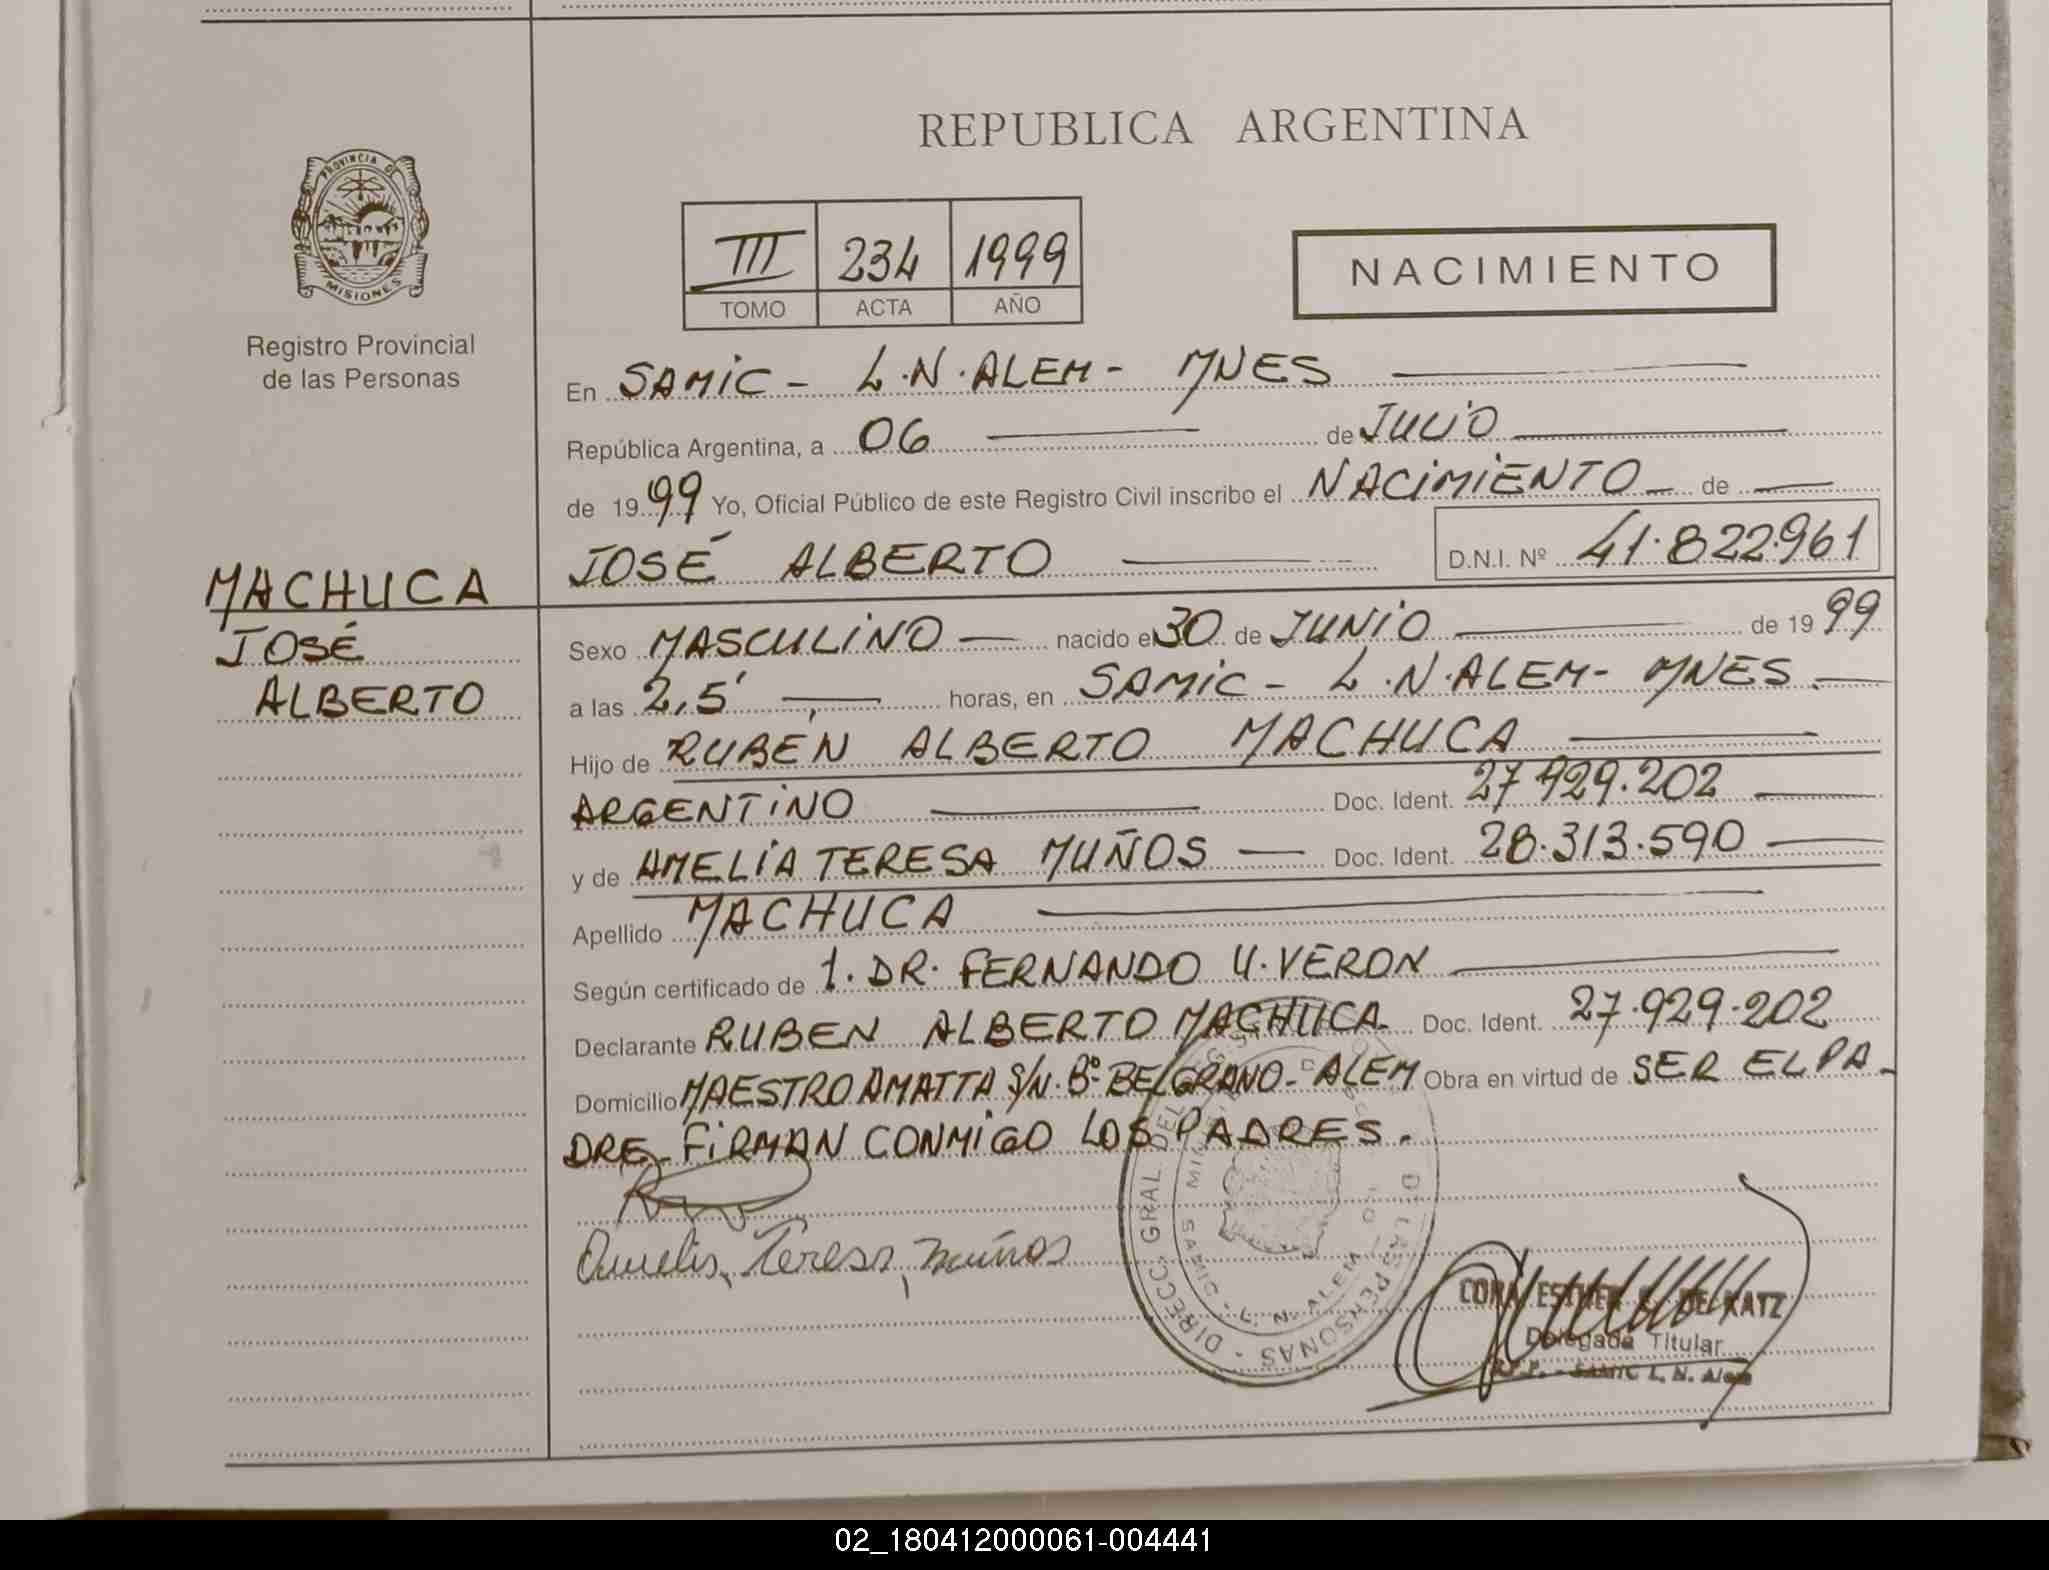 REPUBLICA ARGENTINA
PROVINCIA DE
MISIONES
Registro Provincial
de las Personas
III 234 1999
TOMO ACTA AÑO
NACIMIENTO
En SAMIC - L.N. ALEM - MNES
República Argentina, a 06 de JULIO
de 1999 Yo, Oficial Público de este Registro Civil inscribo el NACIMIENTO de
JOSÉ ALBERTO D.N.I. Nº 41.822.961
MACHUCA
JOSÉ
ALBERTO
Sexo MASCULINO nacido el 30 de JUNIO de 1999
a las 2,5' horas, en SAMIC - L.N. ALEM - MNES.
Hijo de RUBEN ALBERTO MACHUCA
ARGENTINO Doc. Ident. 27.929.202
y de AMELIA TERESA MUÑOS Doc. Ident. 28.313.590
Apellido MACHUCA
Según certificado de 1. DR. FERNANDO U. VERON
Declarante RUBEN ALBERTO MACHUCA Doc. Ident. 27.929.202
Domicilio MAESTRO AMATTA S/N. Bº BELGRANO - ALEM Obra en virtud de SER EL PA-
DRE - FIRMAN CONMIGO LOS PADRES.
Amelia, Teresa, muños
DIRECC. GRAL DEL DE LAS PERSONAS
SAMIC - L. N. ALEM
CORA ESTHER DE KATZ
Delegada Titular
SAMIC L. N. Alem
02_180412000061-004441